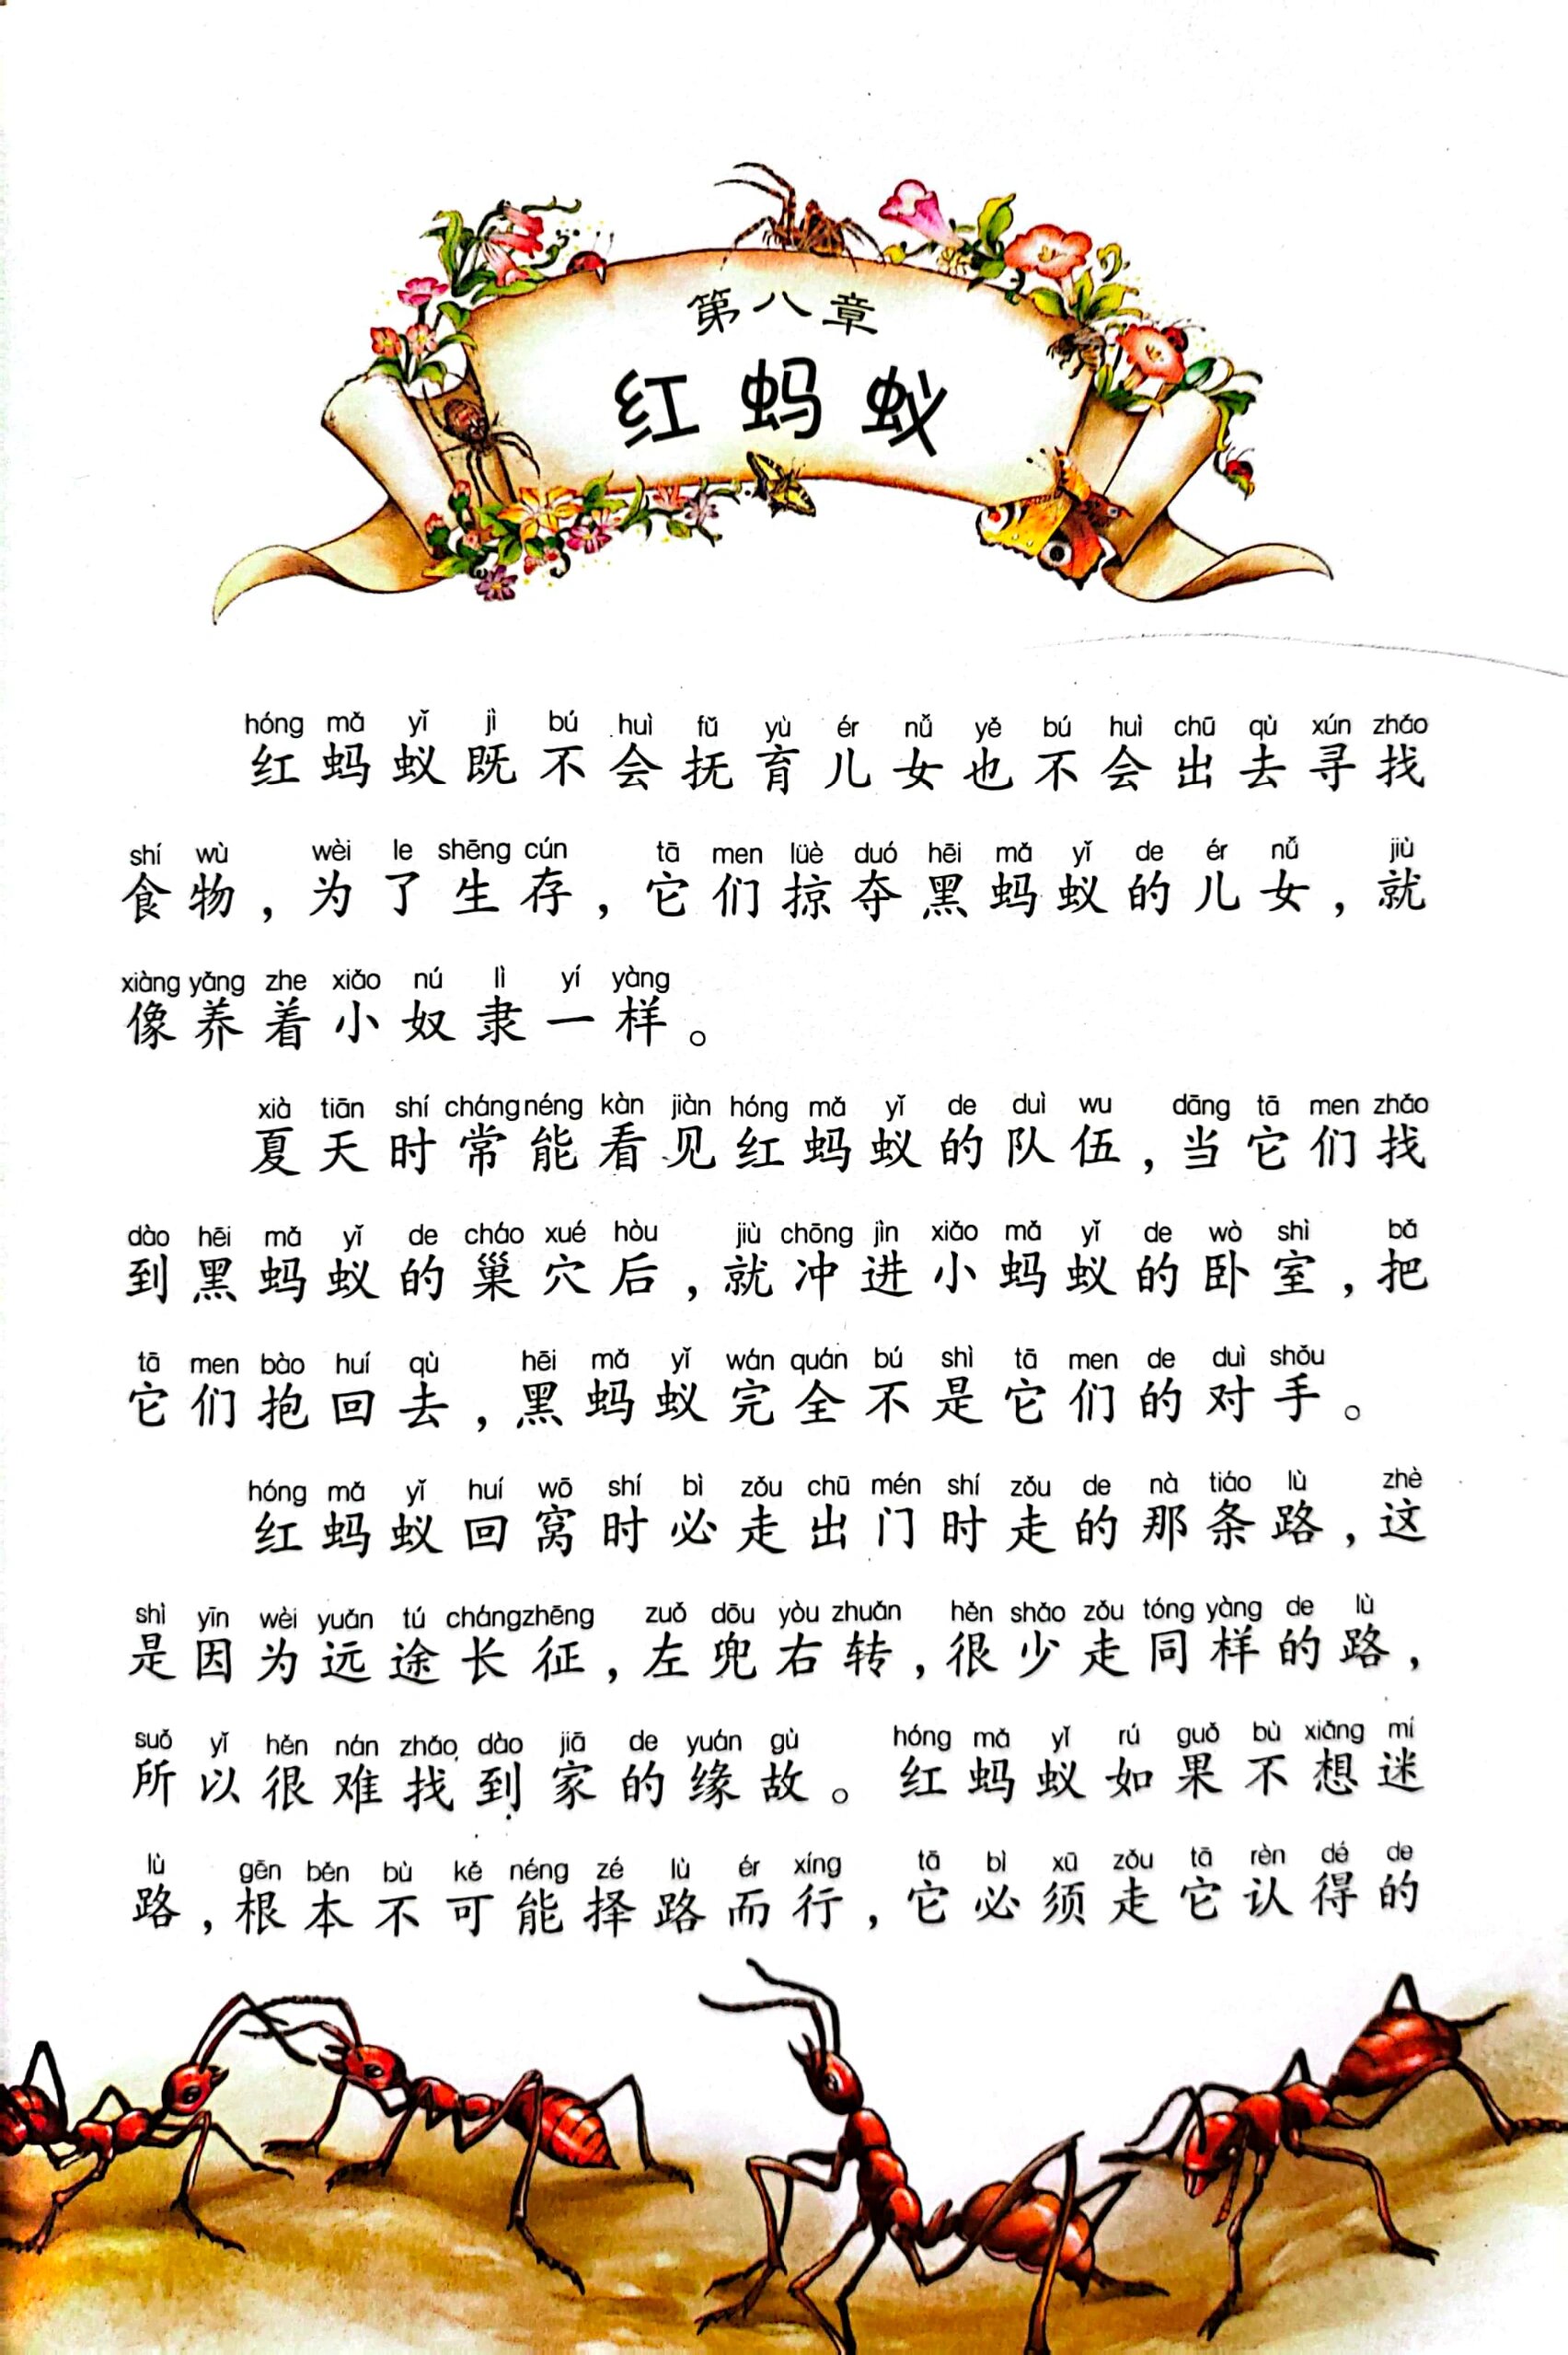 第八章
红蚂蚁
hóng mǎ yǐ jì bú huì fǔ yù ér nǚ yě bú huì chū qù xún zhǎo
红蚂蚁既不会抚育儿女也不会出去寻找
shí wù wèi le shēng cún tā men lüè duó hēi mǎ yǐ de ér nǚ jiù
食物，为了生存，它们掠夺黑蚂蚁的儿女，就
xiàng yǎng zhe xiǎo nú lì yí yàng
像养着小奴隶一样。
xià tiān shí cháng néng kàn jiàn hóng mǎ yǐ de duì wu dāng tā men zhǎo
夏天时常能看见红蚂蚁的队伍，当它们找
dào hēi mǎ yǐ de cháo xué hòu jiù chōng jìn xiǎo mǎ yǐ de wò shì bǎ
到黑蚂蚁的巢穴后，就冲进小蚂蚁的卧室，把
tā men bào huí qù hēi mǎ yǐ wán quán bú shì tā men de duì shǒu
它们抱回去，黑蚂蚁完全不是它们的对手。
hóng mǎ yǐ huí wō shí bì zǒu chū mén shí zǒu de nà tiáo lù zhè
红蚂蚁回窝时必走出门时走的那条路，这
shì yīn wèi yuǎn tú cháng zhēng zuǒ dōu yòu zhuǎn hěn shǎo zǒu tóng yàng de lù
是因为远途长征，左兜右转，很少走同样的路，
suǒ yǐ hěn nán zhǎo dào jiā de yuán gù hóng mǎ yǐ rú guǒ bù xiǎng mí
所以很难找到家的缘故。红蚂蚁如果不想迷
lù gēn běn bù kě néng zé lù ér xíng tā bì xū zǒu tā rèn dé de
路，根本不可能择路而行，它必须走它认得的